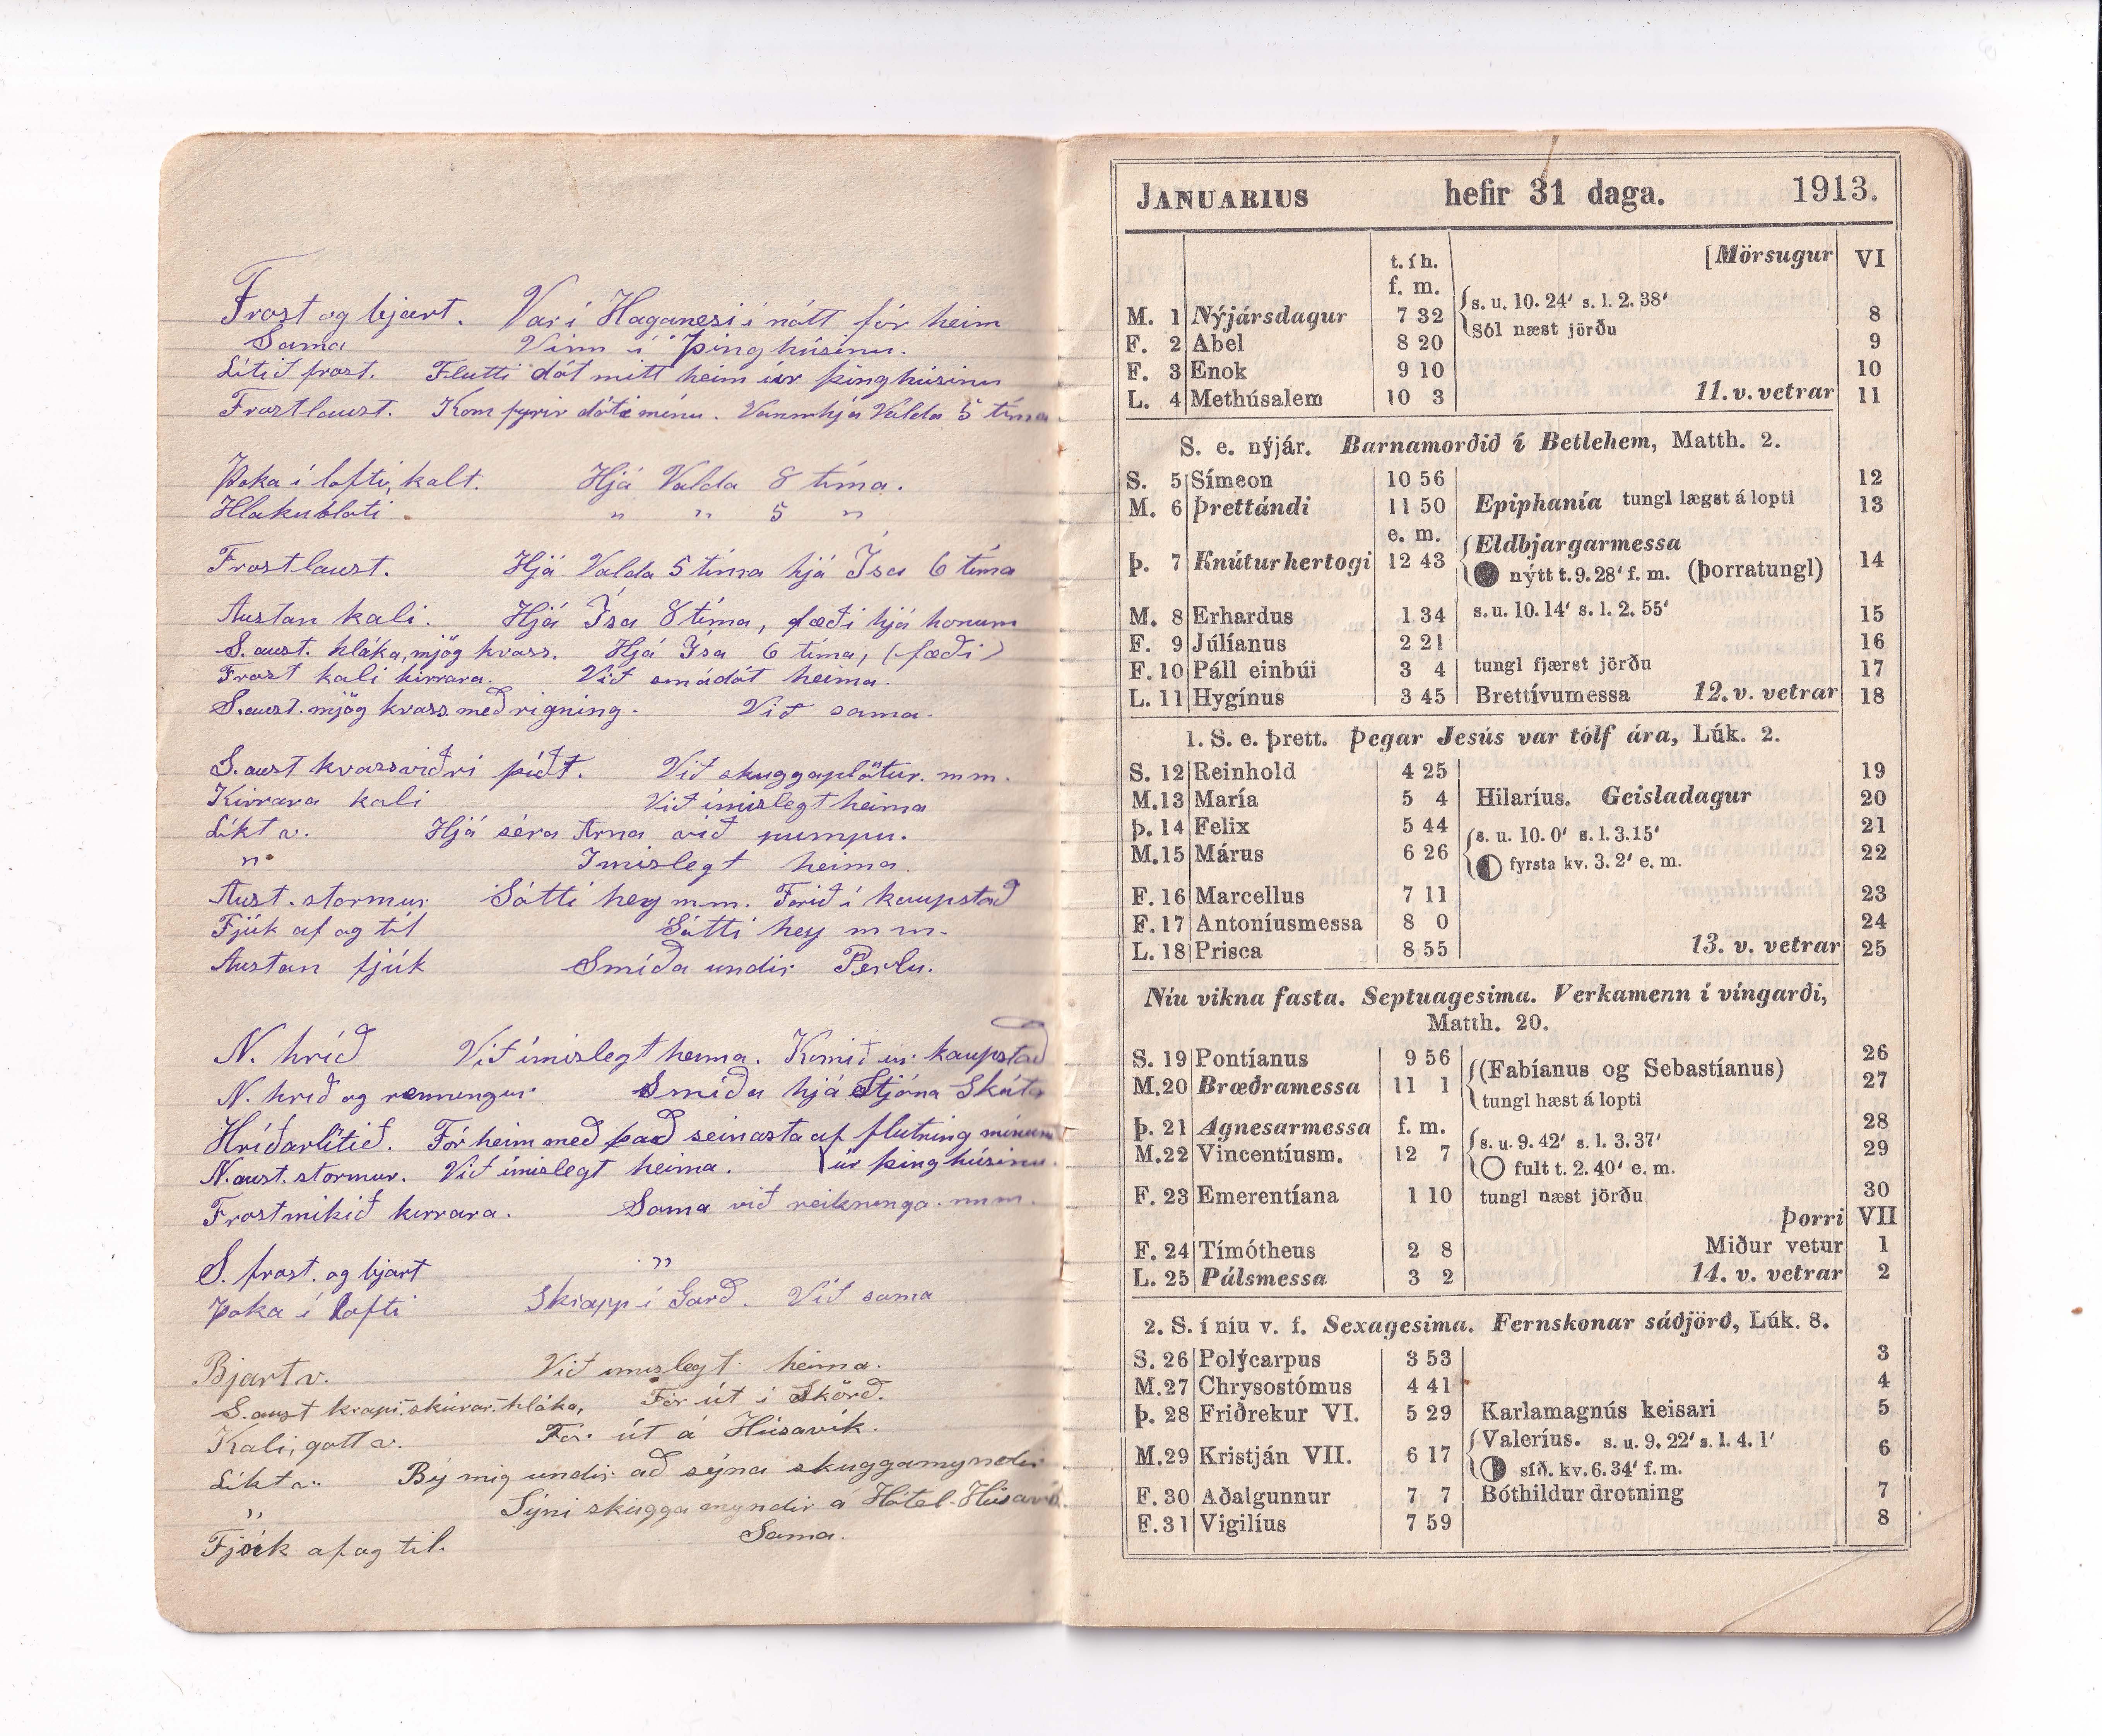 Frost og bjart. Var í Haganesi í nótt fór heim
Sama Vinn í Þinghúsinu.
Lítið frost. Flutti dót mitt heim úr þinghúsinu
Frostlaust. Kom fyrir dóti mínu. Vann hjá Valda 5 tíma
Þoka í lofti, kalt. Hjá Valda 8 tíma.
Hlákubloti " " 5 "
Frostlaust. Hjá Valda 5 tíma hjá Ísa 6 tíma
Austan kali. Hjá Ísa 8 tíma, fæði hjá honum
S. aust. hláka, mjög hvass. Hjá Ísa 6 tíma, (fæði)
Frost kali kirrara. Við smádót heima.
S. aust. mjög hvass með rigning. Við sama.
S. aust kvassviðri þíðt. Við skuggaplötur. m m.
Kirrara kali Við ímislegt heima
Líkt v. Hjá séra Árna við pumpu.
" Imislegt heima.
Aust. stormur Sótti hey m.m. Farið í kaupstað
Fjúk af og til Sótti hey m m.
Austan fjúk Smíða undir Perlu.
N. hríð Við ímislegt heima. Komið úr kaupstað
N. hríð og renningur Smíða hjá Stjóna Skúta
Hríðarlítið. Fór heim með það seinasta af flutning mínum
N. aust. stormur. Við ímislegt heima. úr þinghúsinu.
Frostmikið kirrara. Sama við reikninga. m m.
S. frost. og bjart "
Þoka í lofti Skrapp í Garð. Við sama
Bjart v. Við ímislegt heima.
S. aust krapi-skúrar-hláka, Fór út í Skörð.
Kali, gott v. Fór út á Húsavík.
Líkt v. Bý mig undir að sýna skuggamyndir
" Sýni skuggamyndir á Hótel Húsavík
Fjúk af og til. Sama.
JANUARIUS hefir 31 daga. 1913.
t. í h. [Mörsugur VI
f. m.
M. 1 Nýjársdagur 7 32 s. u. 10. 24′ s. l. 2. 38′ 8
Sól næst jörðu
F. 2 Abel 8 20 9
F. 3 Enok 9 10 10
L. 4 Methúsalem 10 3 11. v. vetrar 11
S. e. nýjár. Barnamorðið í Betlehem, Matth. 2.
S. 5 Símeon 10 56 12
M. 6 Þrettándi 11 50 Epiphanía tungl lægst á lopti 13
e. m. Eldbjargarmessa
Þ. 7 Knútur hertogi 12 43 nýtt t. 9. 28′ f. m. (þorratungl) 14
M. 8 Erhardus 1 34 s. u. 10. 14′ s. l. 2. 55′ 15
F. 9 Júlíanus 2 21 16
F. 10 Páll einbúi 3 4 tungl fjærst jörðu 17
L. 11 Hygínus 3 45 Brettívumessa 12. v. vetrar 18
1. S. e. þrett. Þegar Jesús var tólf ára, Lúk. 2.
S. 12 Reinhold 4 25 19
M. 13 María 5 4 Hilaríus. Geisladagur 20
Þ. 14 Felix 5 44 s. u. 10. 0′ s. l. 3. 15′ 21
M. 15 Márus 6 26 fyrsta kv. 3. 2′ e. m. 22
F. 16 Marcellus 7 11 23
F. 17 Antoníusmessa 8 0 24
L. 18 Prisca 8 55 13. v. vetrar 25
Níu vikna fasta. Septuagesima. Verkamenn í víngarði,
Matth. 20.
S. 19 Pontíanus 9 56 (Fabíanus og Sebastíanus) 26
M. 20 Bræðramessa 11 1 tungl hæst á lopti 27
Þ. 21 Agnesarmessa f. m. s. u. 9. 42′ s. l. 3. 37′ 28
M. 22 Vincentíusm. 12 7 fult t. 2. 40′ e. m. 29
F. 23 Emerentíana 1 10 tungl næst jörðu 30
Þorri VII
F. 24 Tímótheus 2 8 Miður vetur 1
L. 25 Pálsmessa 3 2 14. v. vetrar 2
2. S. í níu v. f. Sexagesima. Fernskonar sáðjörð, Lúk. 8.
S. 26 Polýcarpus 3 53 3
M. 27 Chrysostómus 4 41 4
Þ. 28 Friðrekur VI. 5 29 Karlamagnús keisari 5
M. 29 Kristján VII. 6 17 Valeríus. s. u. 9. 22′ s. l. 4. 1′ 6
síð. kv. 6. 34′ f. m.
F. 30 Aðalgunnur 7 7 Bóthildur drotning 7
F. 31 Vigilíus 7 59 8